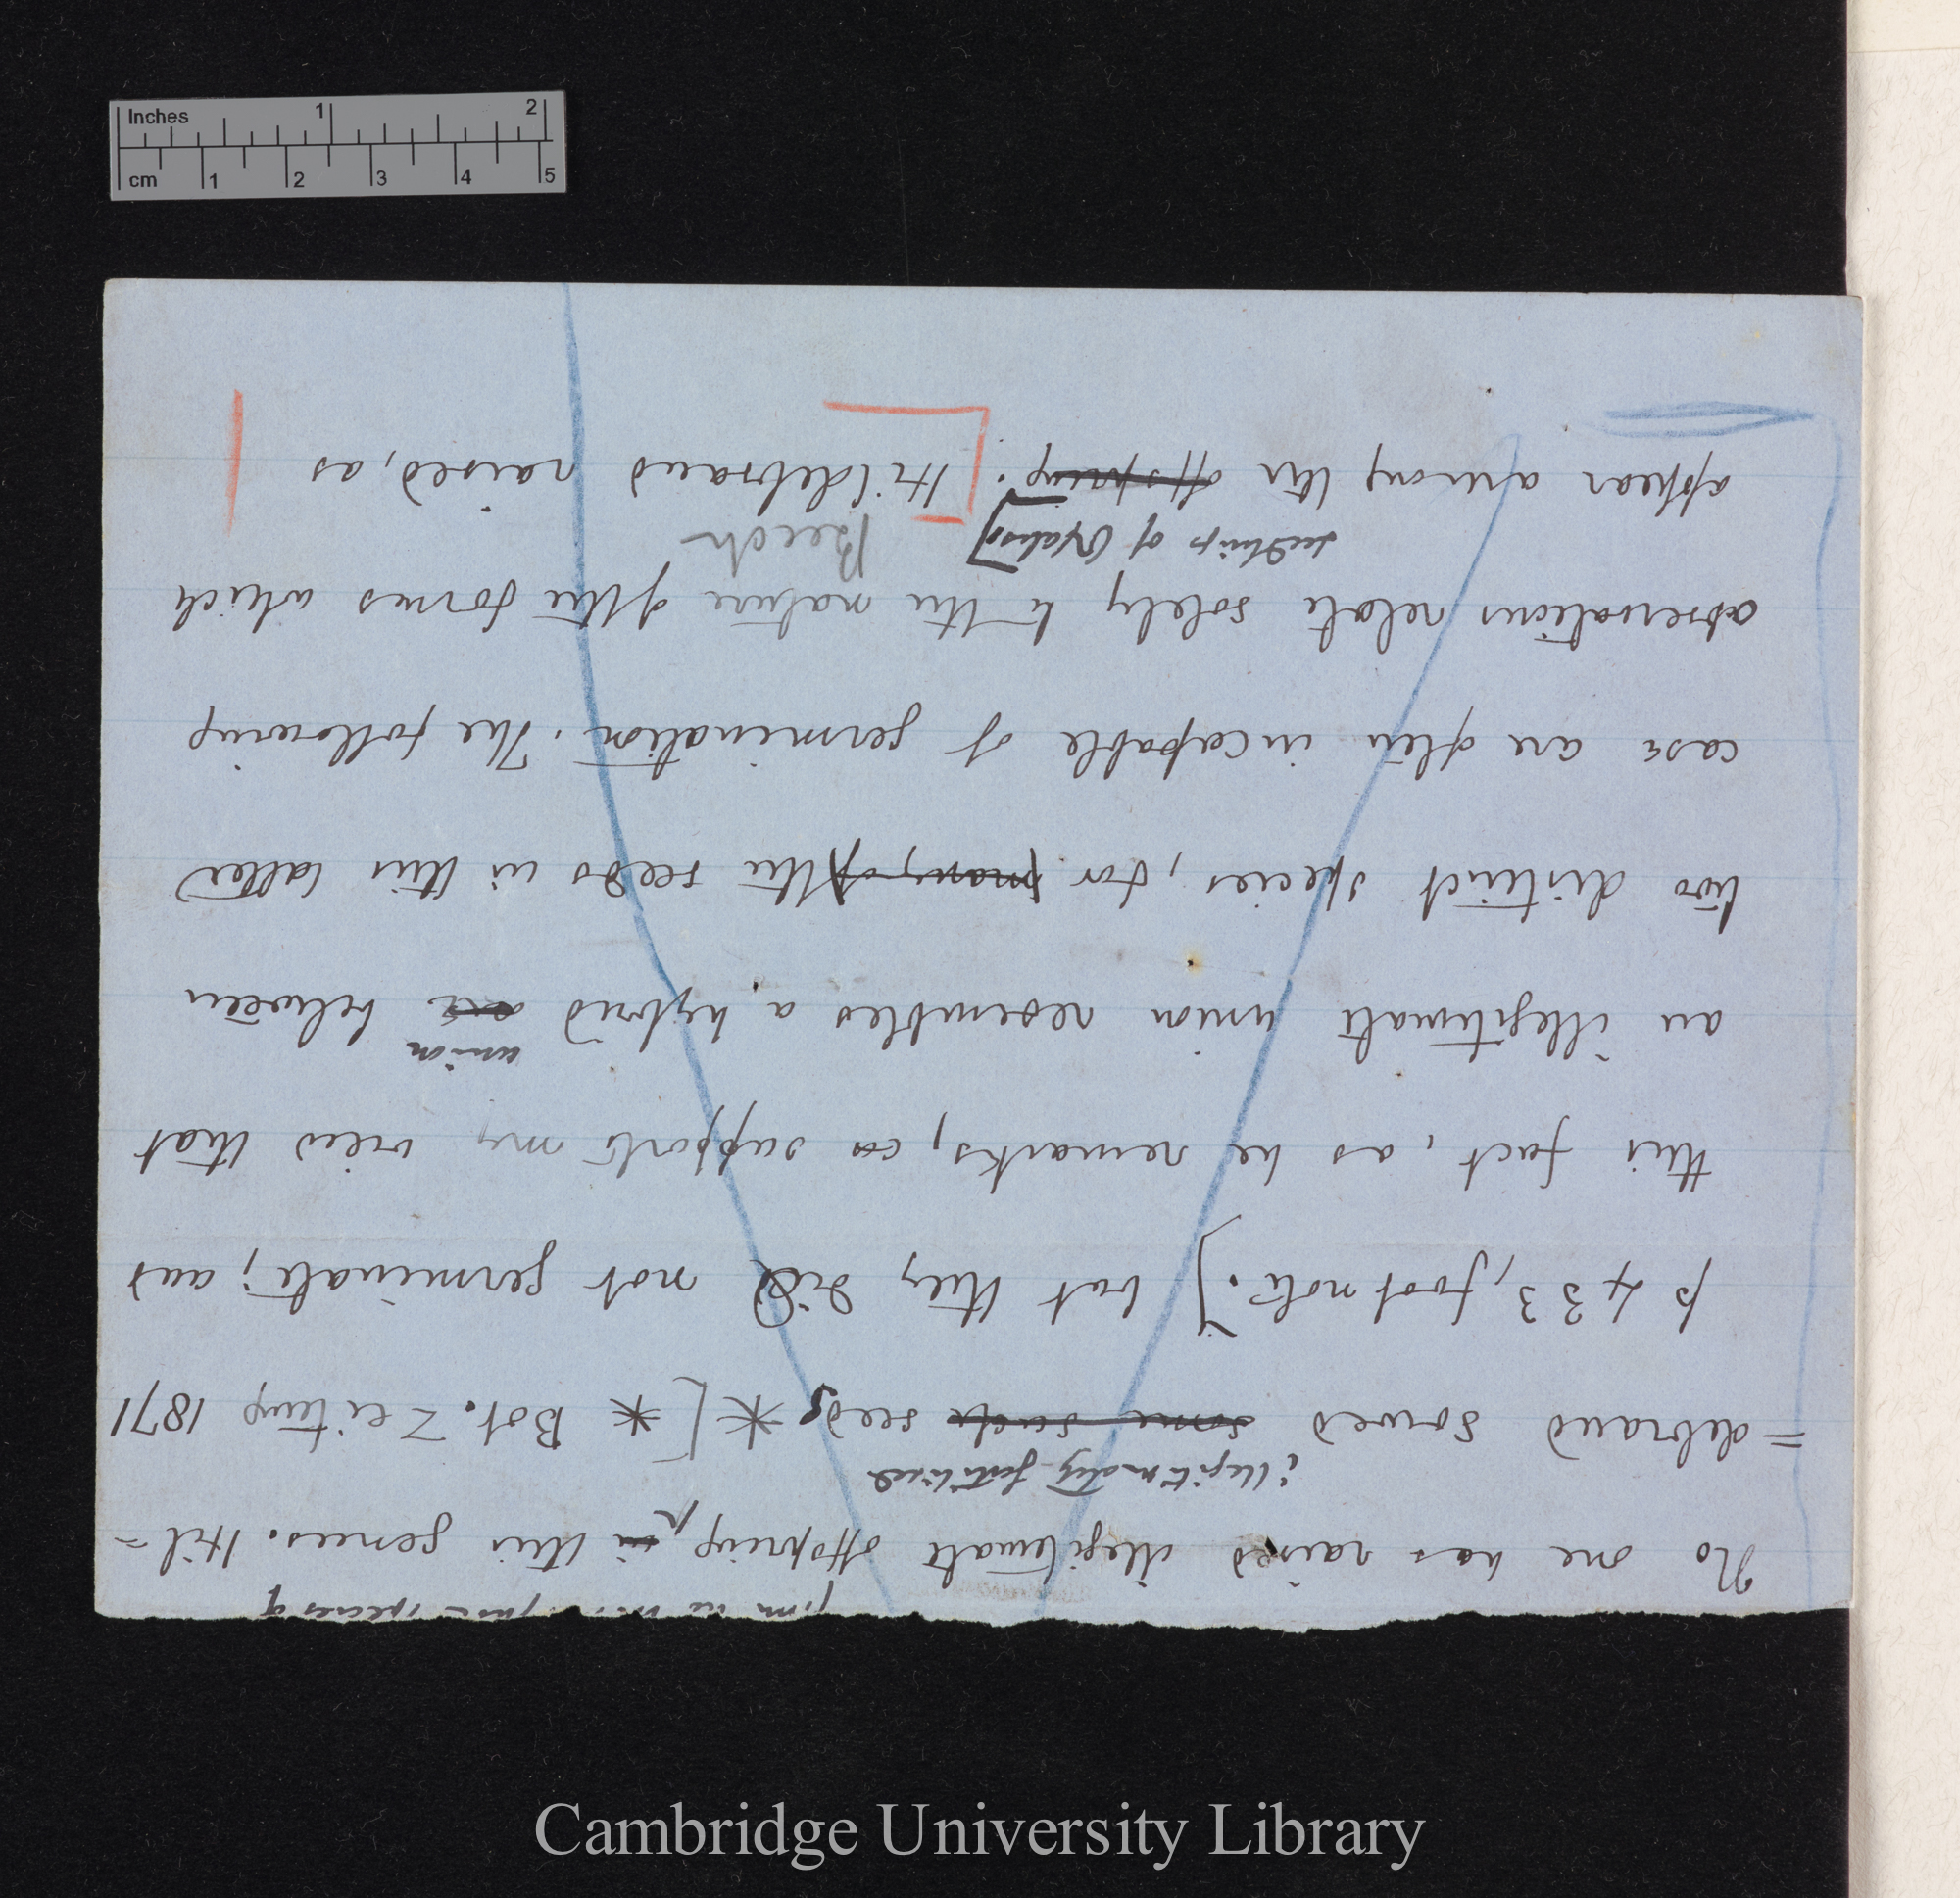 Inches 1 2
cm 1 2 3 4 5
species of
No one has raised illegitimate offspring in this genus. Hil-
illegitimately fertilised
=debrand sowed some such seeds * [* Bot. Zeitung 1871
p 433, foot note.] but they did not germinate; and
this fact, as he remarks, supports my view that
union
an illegitimate union resembles a hybrid one between
two distinct species, for many of the seeds in this latter
case are often incapable of germination. The following
observations relate solely to the nature of the forms which
seedlings of Oxalis]
appear among the offspring. Hildebrand raised, as
Cambridge University Library